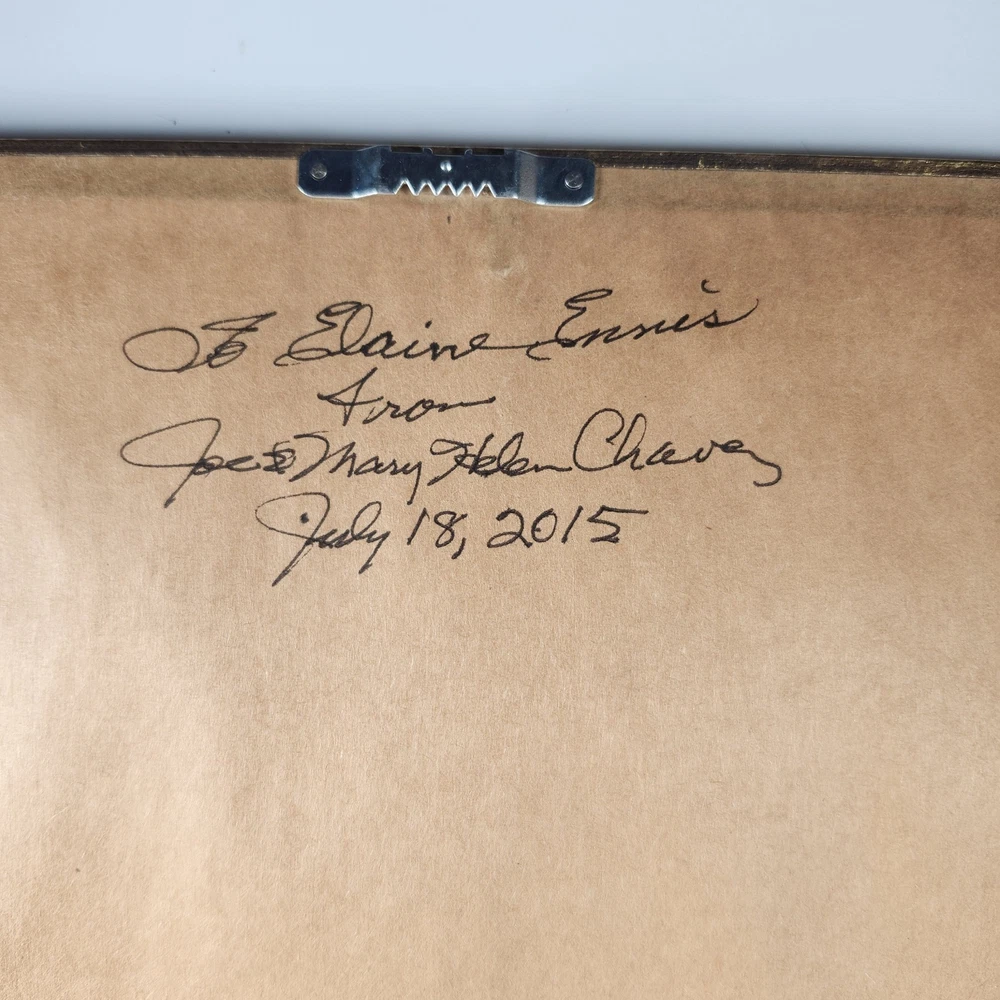 To Elaine Ennis
from
Joe & Mary Helen Chavez
July 18, 2015